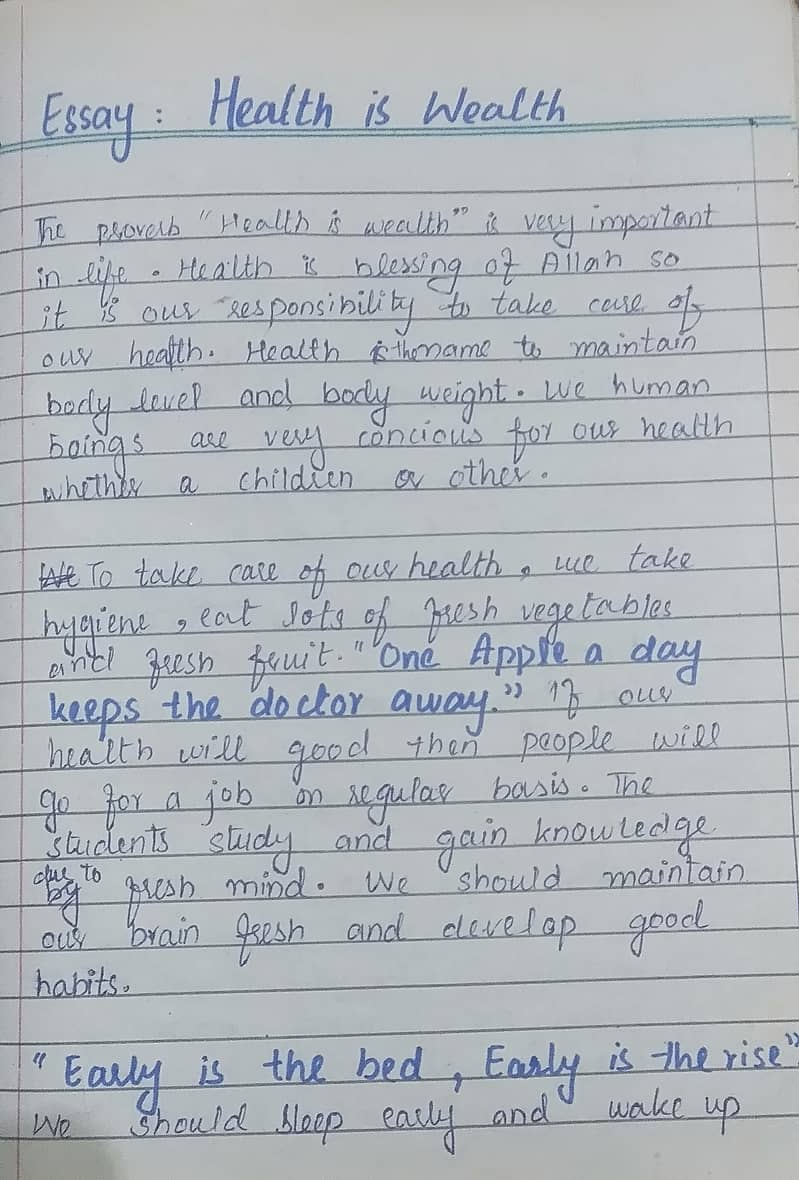 Essay: Health is Wealth
The proverb "Health is wealth" is very important
in life. Health is blessing of Allah so
it is our responsibility to take care of
our health. Health is the name to maintain
body level and body weight. We human
boings are very concious for our health
whether a children or other.
To take care of our health, we take
hygiene, eat lots of fresh vegetables
and fresh fruit. "One Apple a day
keeps the doctor away." If our
health will good then people will
go for a job on regular basis. The
students study and gain knowledge
due to
fresh mind. We should maintain
our brain fresh and develop good
habits.
"Early is the bed, Early is the rise"
We should sleep early and wake up